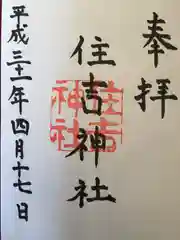 奉拝
住吉神社
住吉神社
平成三十一年四月十七日